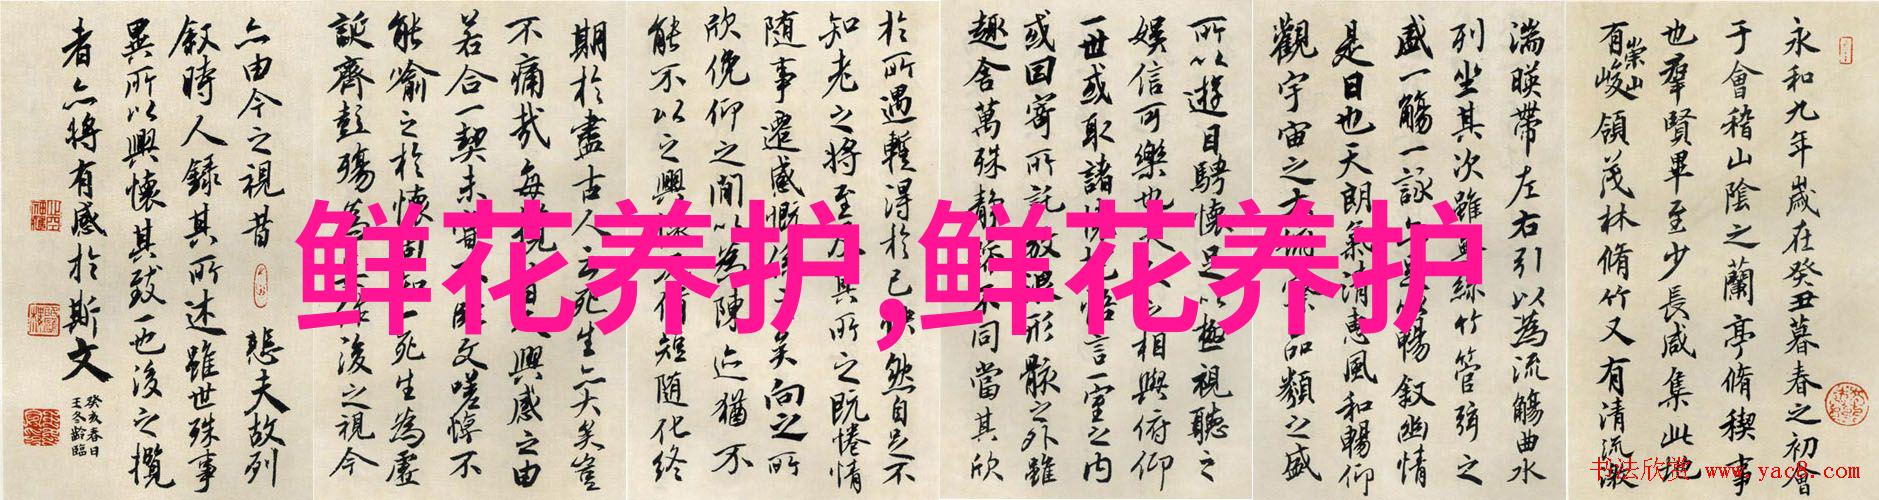 永和九年歲在癸丑暮春之初會
于會稽山陰之蘭亭脩稧事
也羣賢畢至少長咸集此地
有崇山峻領茂林脩竹又有清流激
湍暎帶左右引以為流觴曲水
列坐其次雖無絲竹管弦之
盛一觴一詠亦足以暢敘幽情
是日也天朗氣清惠風和暢仰
觀宇宙之大俯察品類之盛
所以遊目騁懷足以極視聽之
娛信可樂也夫人之相與俯仰
一世或取諸懷抱悟言一室之內
或因寄所託放浪形骸之外雖
趣舍萬殊靜躁不同當其欣
於所遇蹔得於己怏然自足不
知老之將至及其所之既惓情
随事遷感慨係之矣向之所
欣俛仰之閒以為陳迹猶不
能不以之興懷況脩短随化終
期於盡古人云死生亦大矣豈
不痛哉每攬昔人興感之由
若合一契未嘗不臨文嗟悼不
能喻之於懷固知一死生為虛
誕齊彭殤為妄作後之視今
亦由今之視昔悲夫故列
敘時人錄其所述雖世殊事
異所以興懷其致一也後之攬
者亦將有感於斯文
癸亥春日
王冬齡臨
鲜花养护,鲜花养护
书法欣赏 www.yac8.com